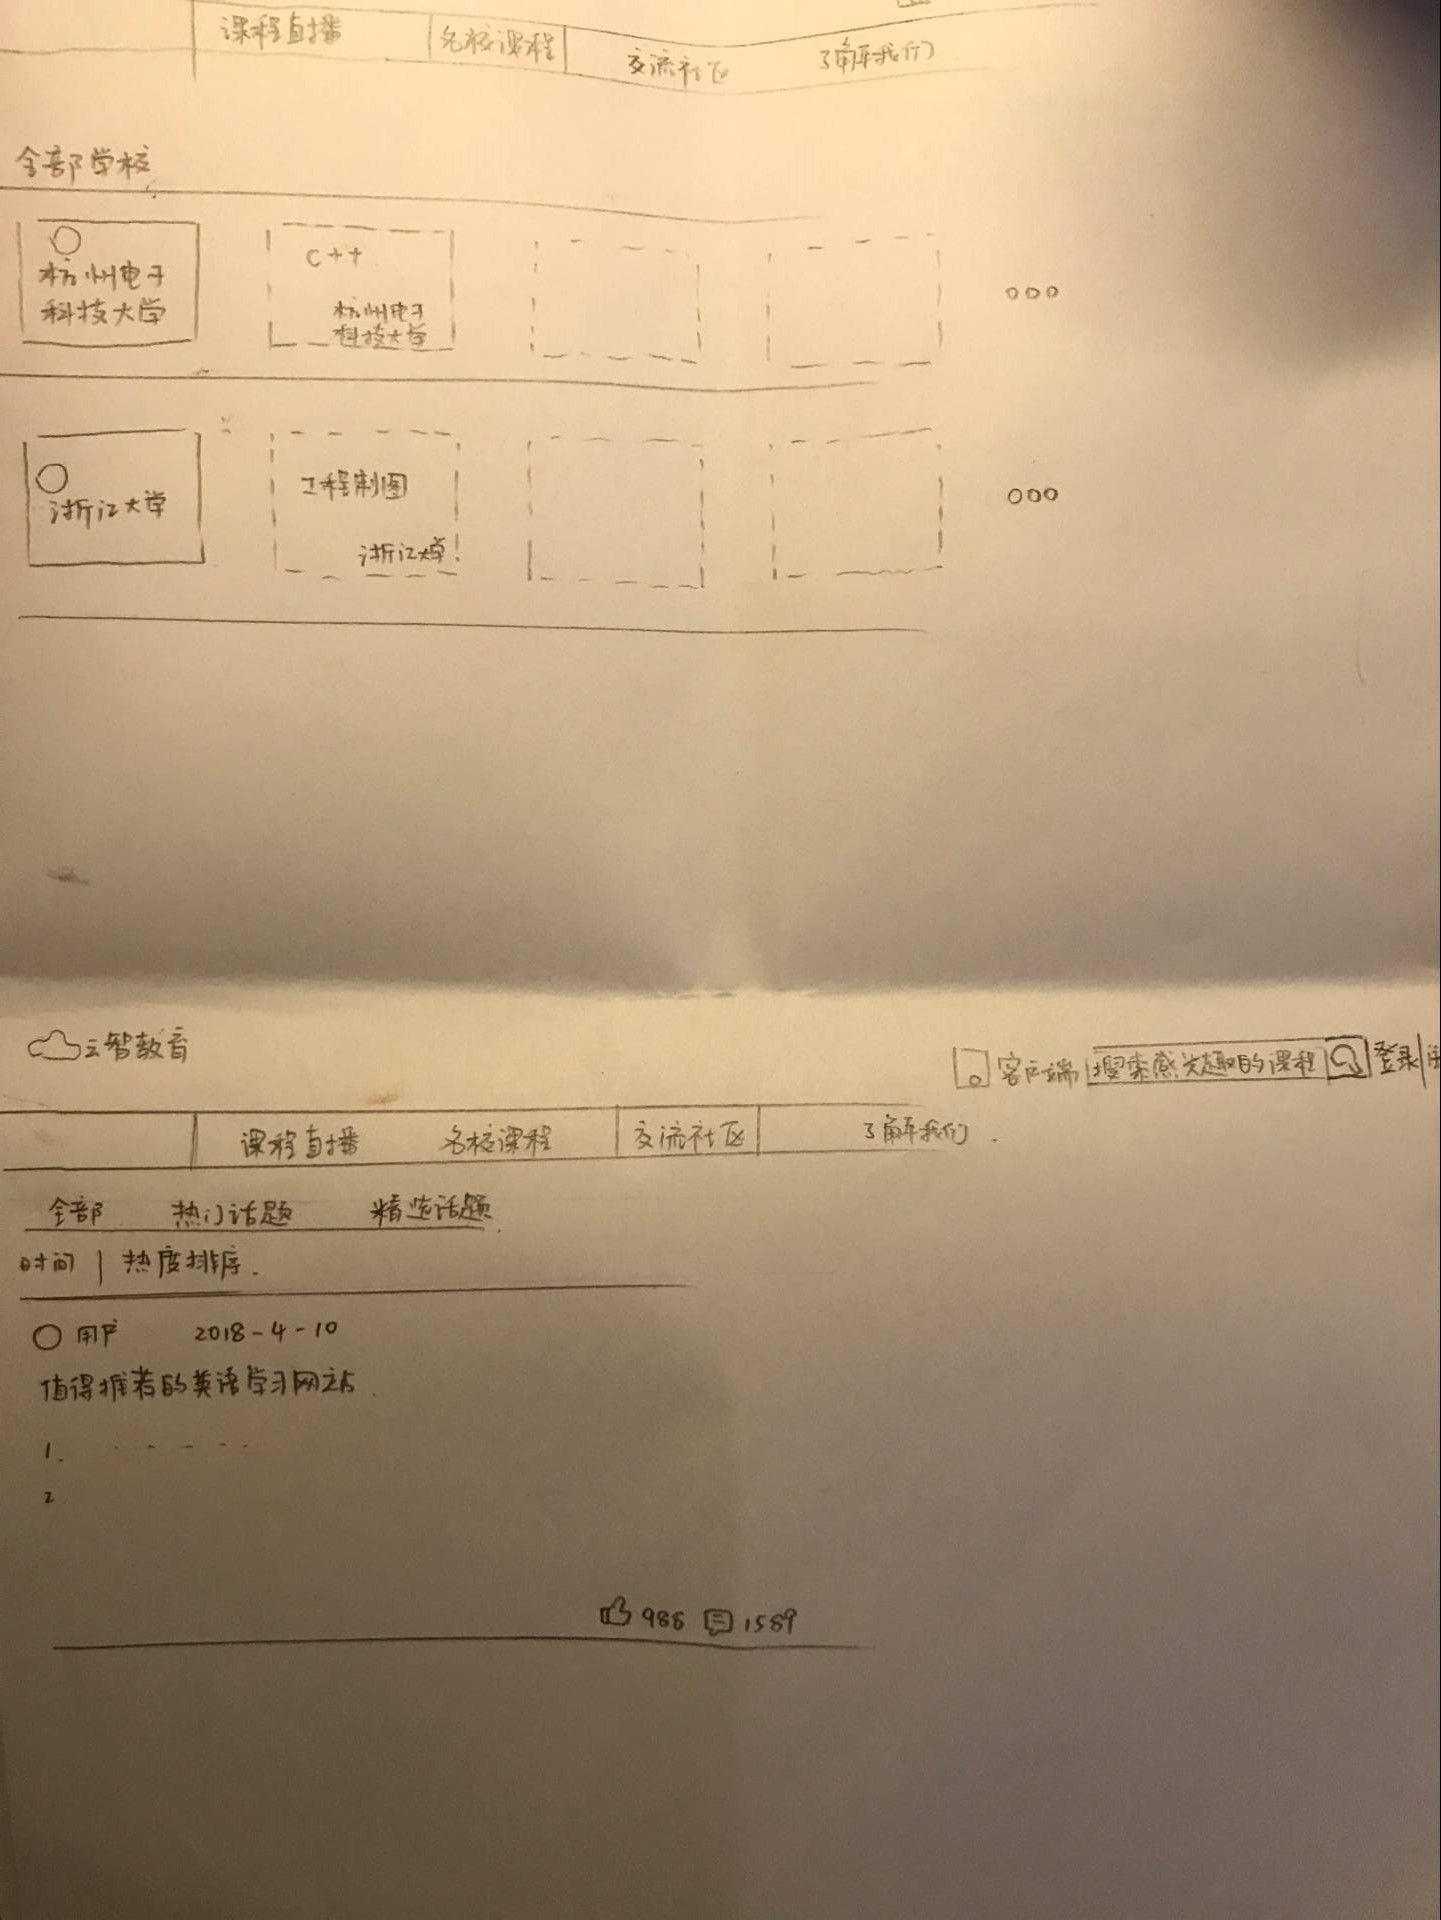 课程直播 名校课程 交流社区 了解我们
全部学校
杭州电子
科技大学
C++
杭州电子
科技大学
浙江大学
工程制图
浙江大学
云智教育 客户端 搜索感兴趣的课程 登录
课程直播 名校课程 交流社区 了解我们.
全部 热门话题 精选话题
时间 | 热度排序.
用户 2018-4-10
值得推荐的英语学习网站.
1.
2
988 1589